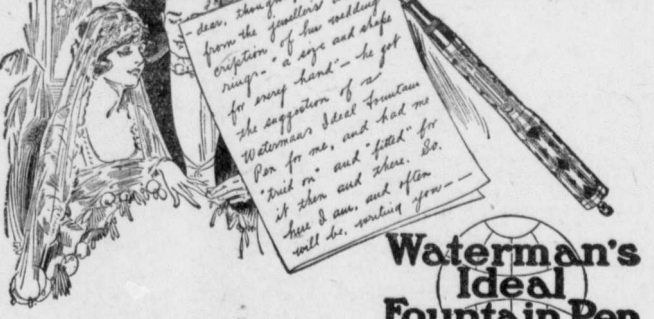 dear, though
from the jewellers
cription of his wedding
rings—"a size and shape
for every hand"—he got
the suggestion of a
Watermans Ideal Fountain
Pen for me, and had me
"tried on" and "fitted" for
it then and there. So.
here I am, and often
will be, writing you——
Waterman's
Ideal
Fountain Pen